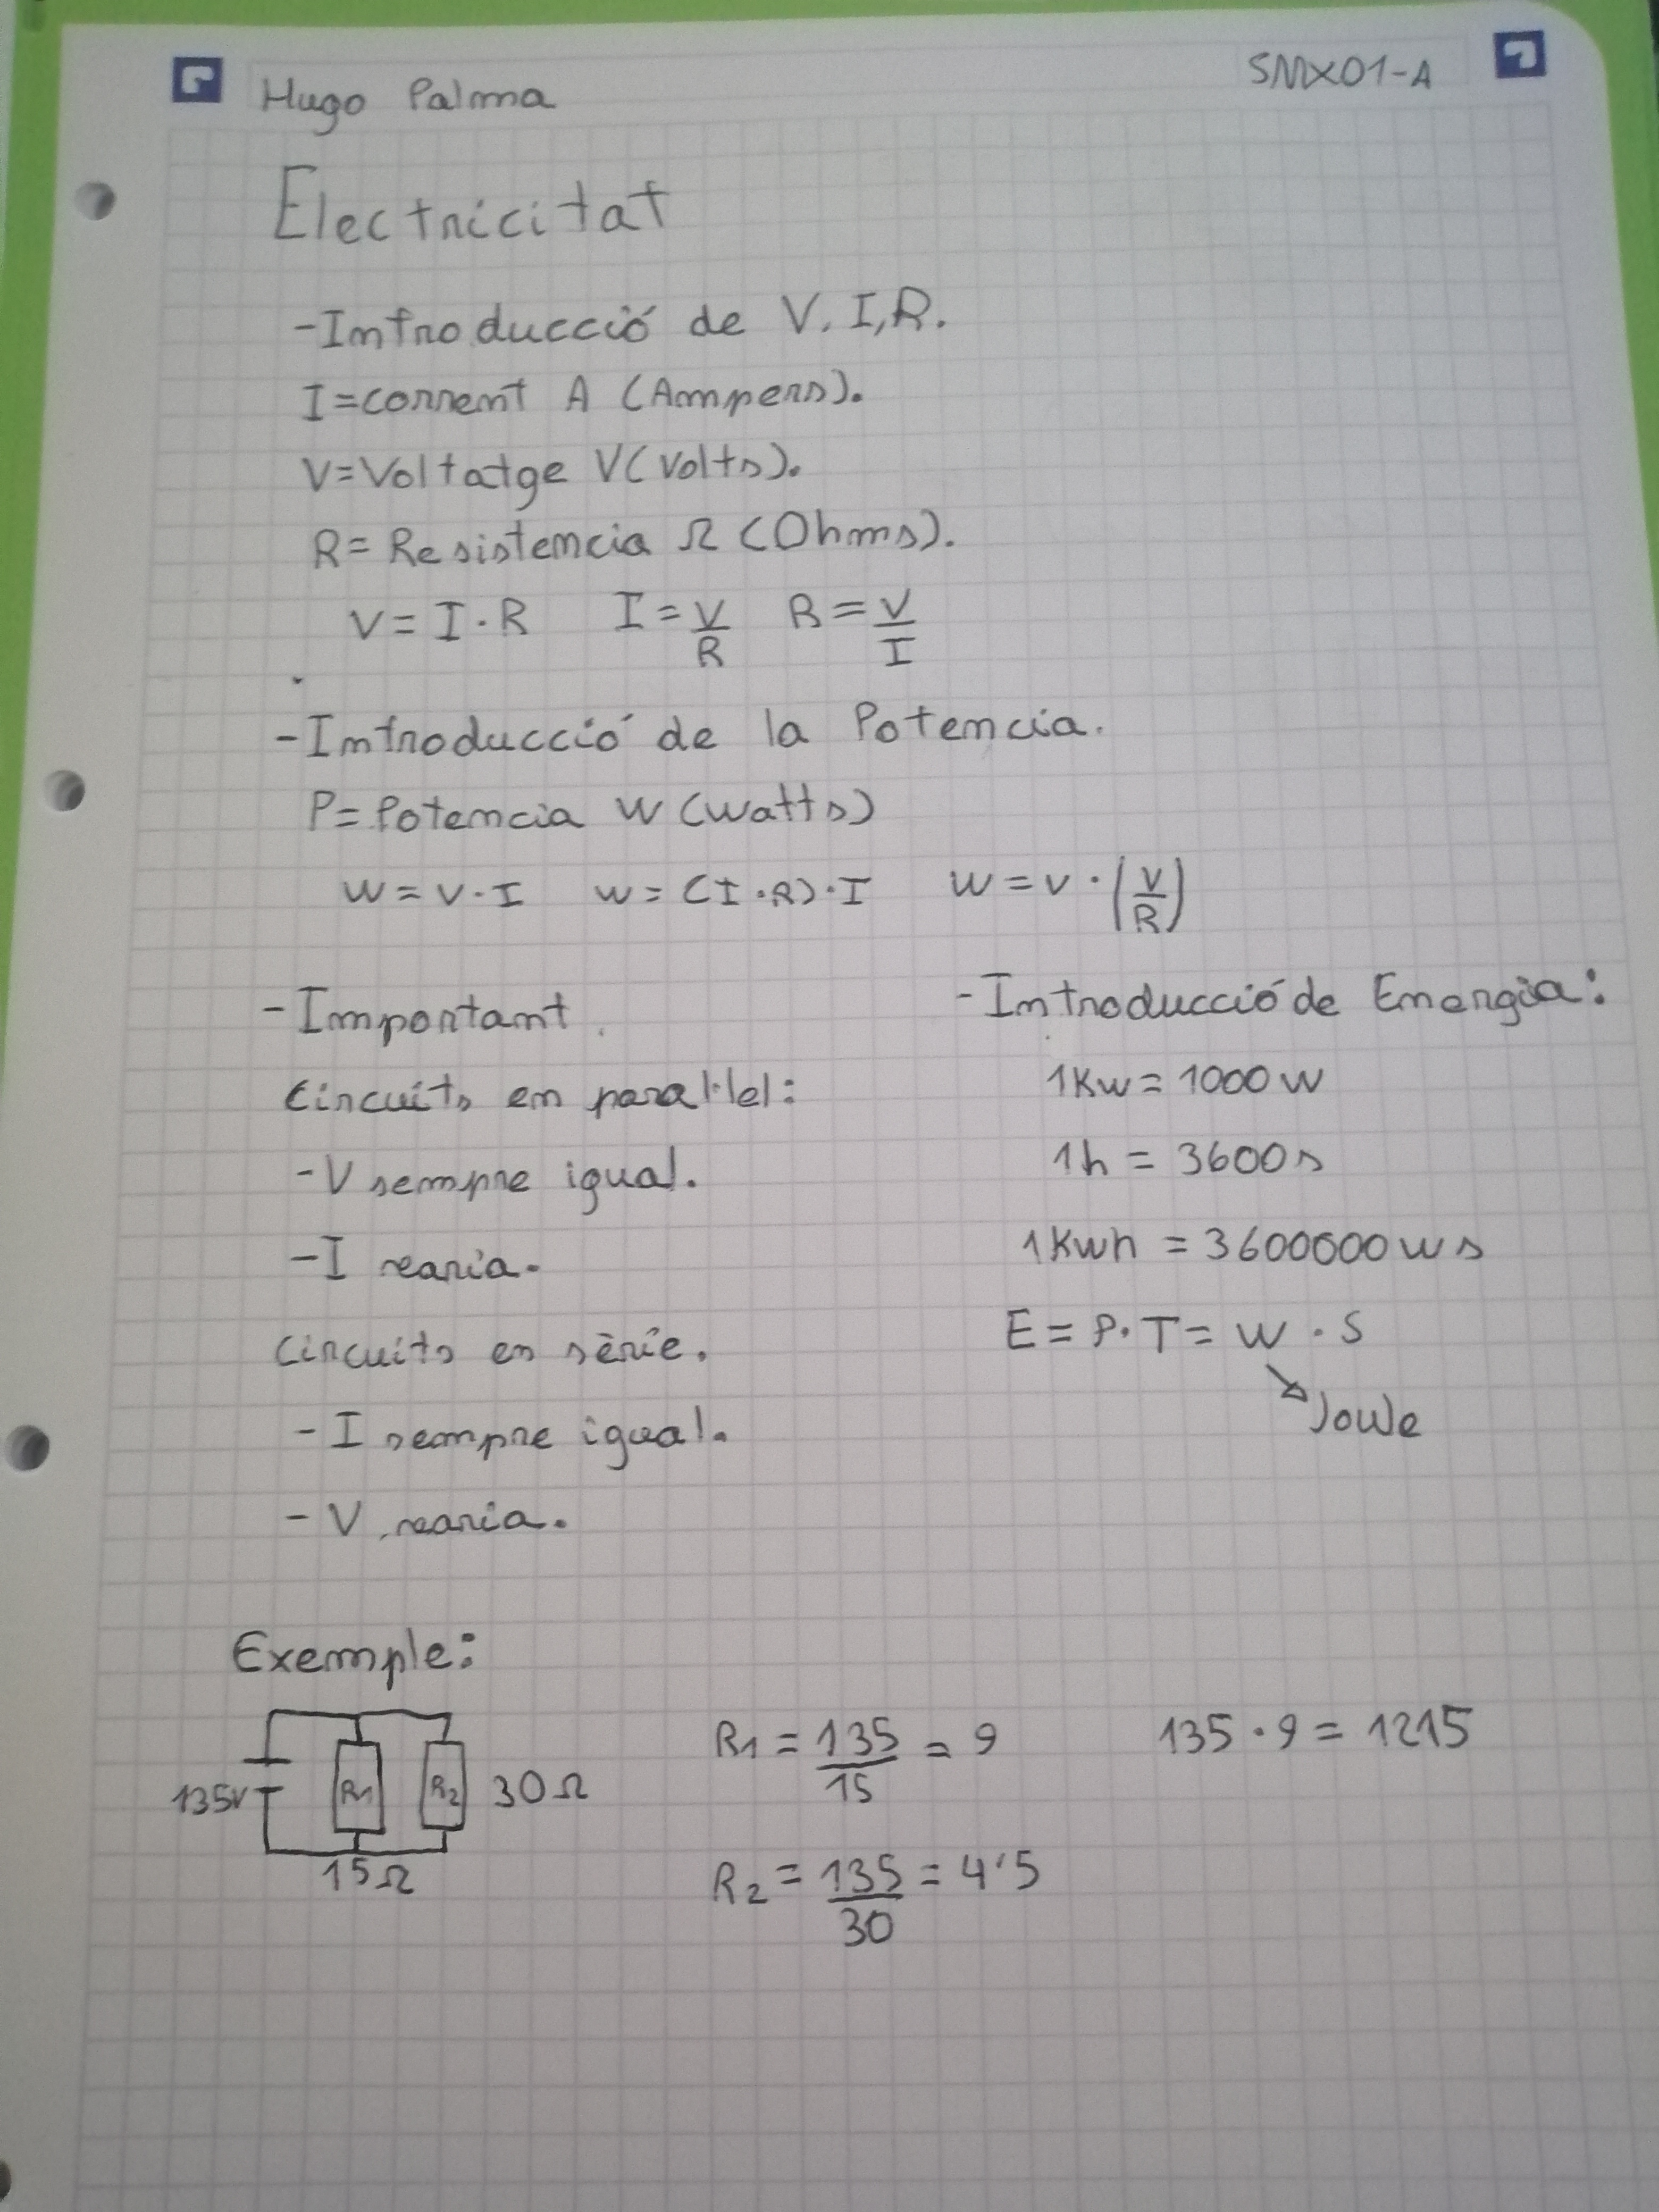 Hugo Palma
SMX01-A
Electricitat
-Introducció de V, I, R.
I=corrent A (Ampers).
V=Voltatge V(Volts).
R= Resistencia Ω (Ohms).
V= I·R   I=V/R   R=V/I
-Introducció de la Potencia.
P=Potencia W (Watts)
W=V·I   W=(I·R)·I   W=V·(V/R)
-Important.
Circuits en paral·lel:
-V sempre igual.
-I varia.
Circuits en sèrie.
-I sempre igual.
-V varia.
-Introducció de Energia:
1Kw=1000w
1h = 3600s
1Kwh = 3600000ws
E=P·T=W·S
Joule
Exemple:
135V
R1
R2
30Ω
15Ω
R1=135/15=9
135·9=1215
R2=135/30=4'5